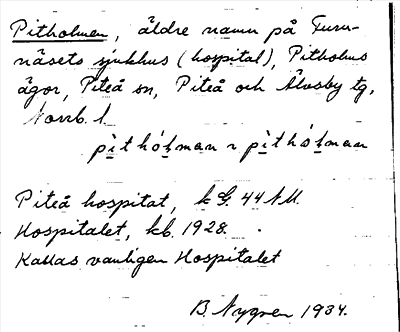 Pitholmen, äldre namn på Furu-
näsets sjukhus (hospital), Pitholms
ägor, Piteå sn, Piteå och Älvsby tg,
Norrb. l.
pìthól̥man ~ pìthól̥man
Piteå hospital, k G. 44
Hospitalet, kb. 1928.
Kallas vanligen Hospitalet
B. Nygren 1934.